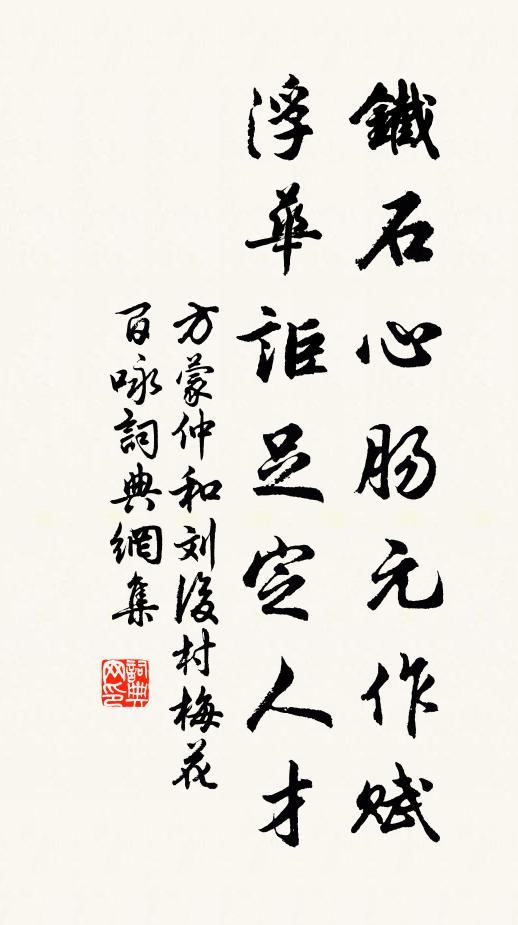 鐵石心肠元作赋
浮華詎足定人才
方蒙仲和刘後村梅花
百咏詞典網集
詞典
网印